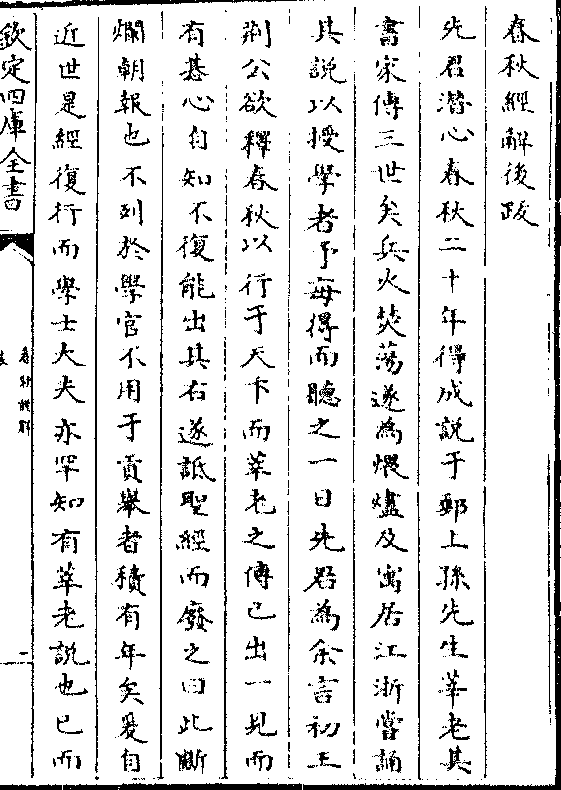 春秋經解後跋
先君潛心春秋二十年得成說于鄭上孫先生莘老其
書家傳三世矣兵火焚蕩遂為煨燼及寓居江浙嘗誦
其說以授學者予每得而聽之一日先君為余言初王
荆公欲釋春秋以行于天下而莘老之傳已出一見而
有惎心自知不復能出其右遂詆聖經而廢之曰此斷
爛朝報也不列於學官不用于貢舉者積有年矣爰自
近世是經復行而學士大夫亦罕知有莘老說也已而
欽定四庫全書
春秋經解
跋
一